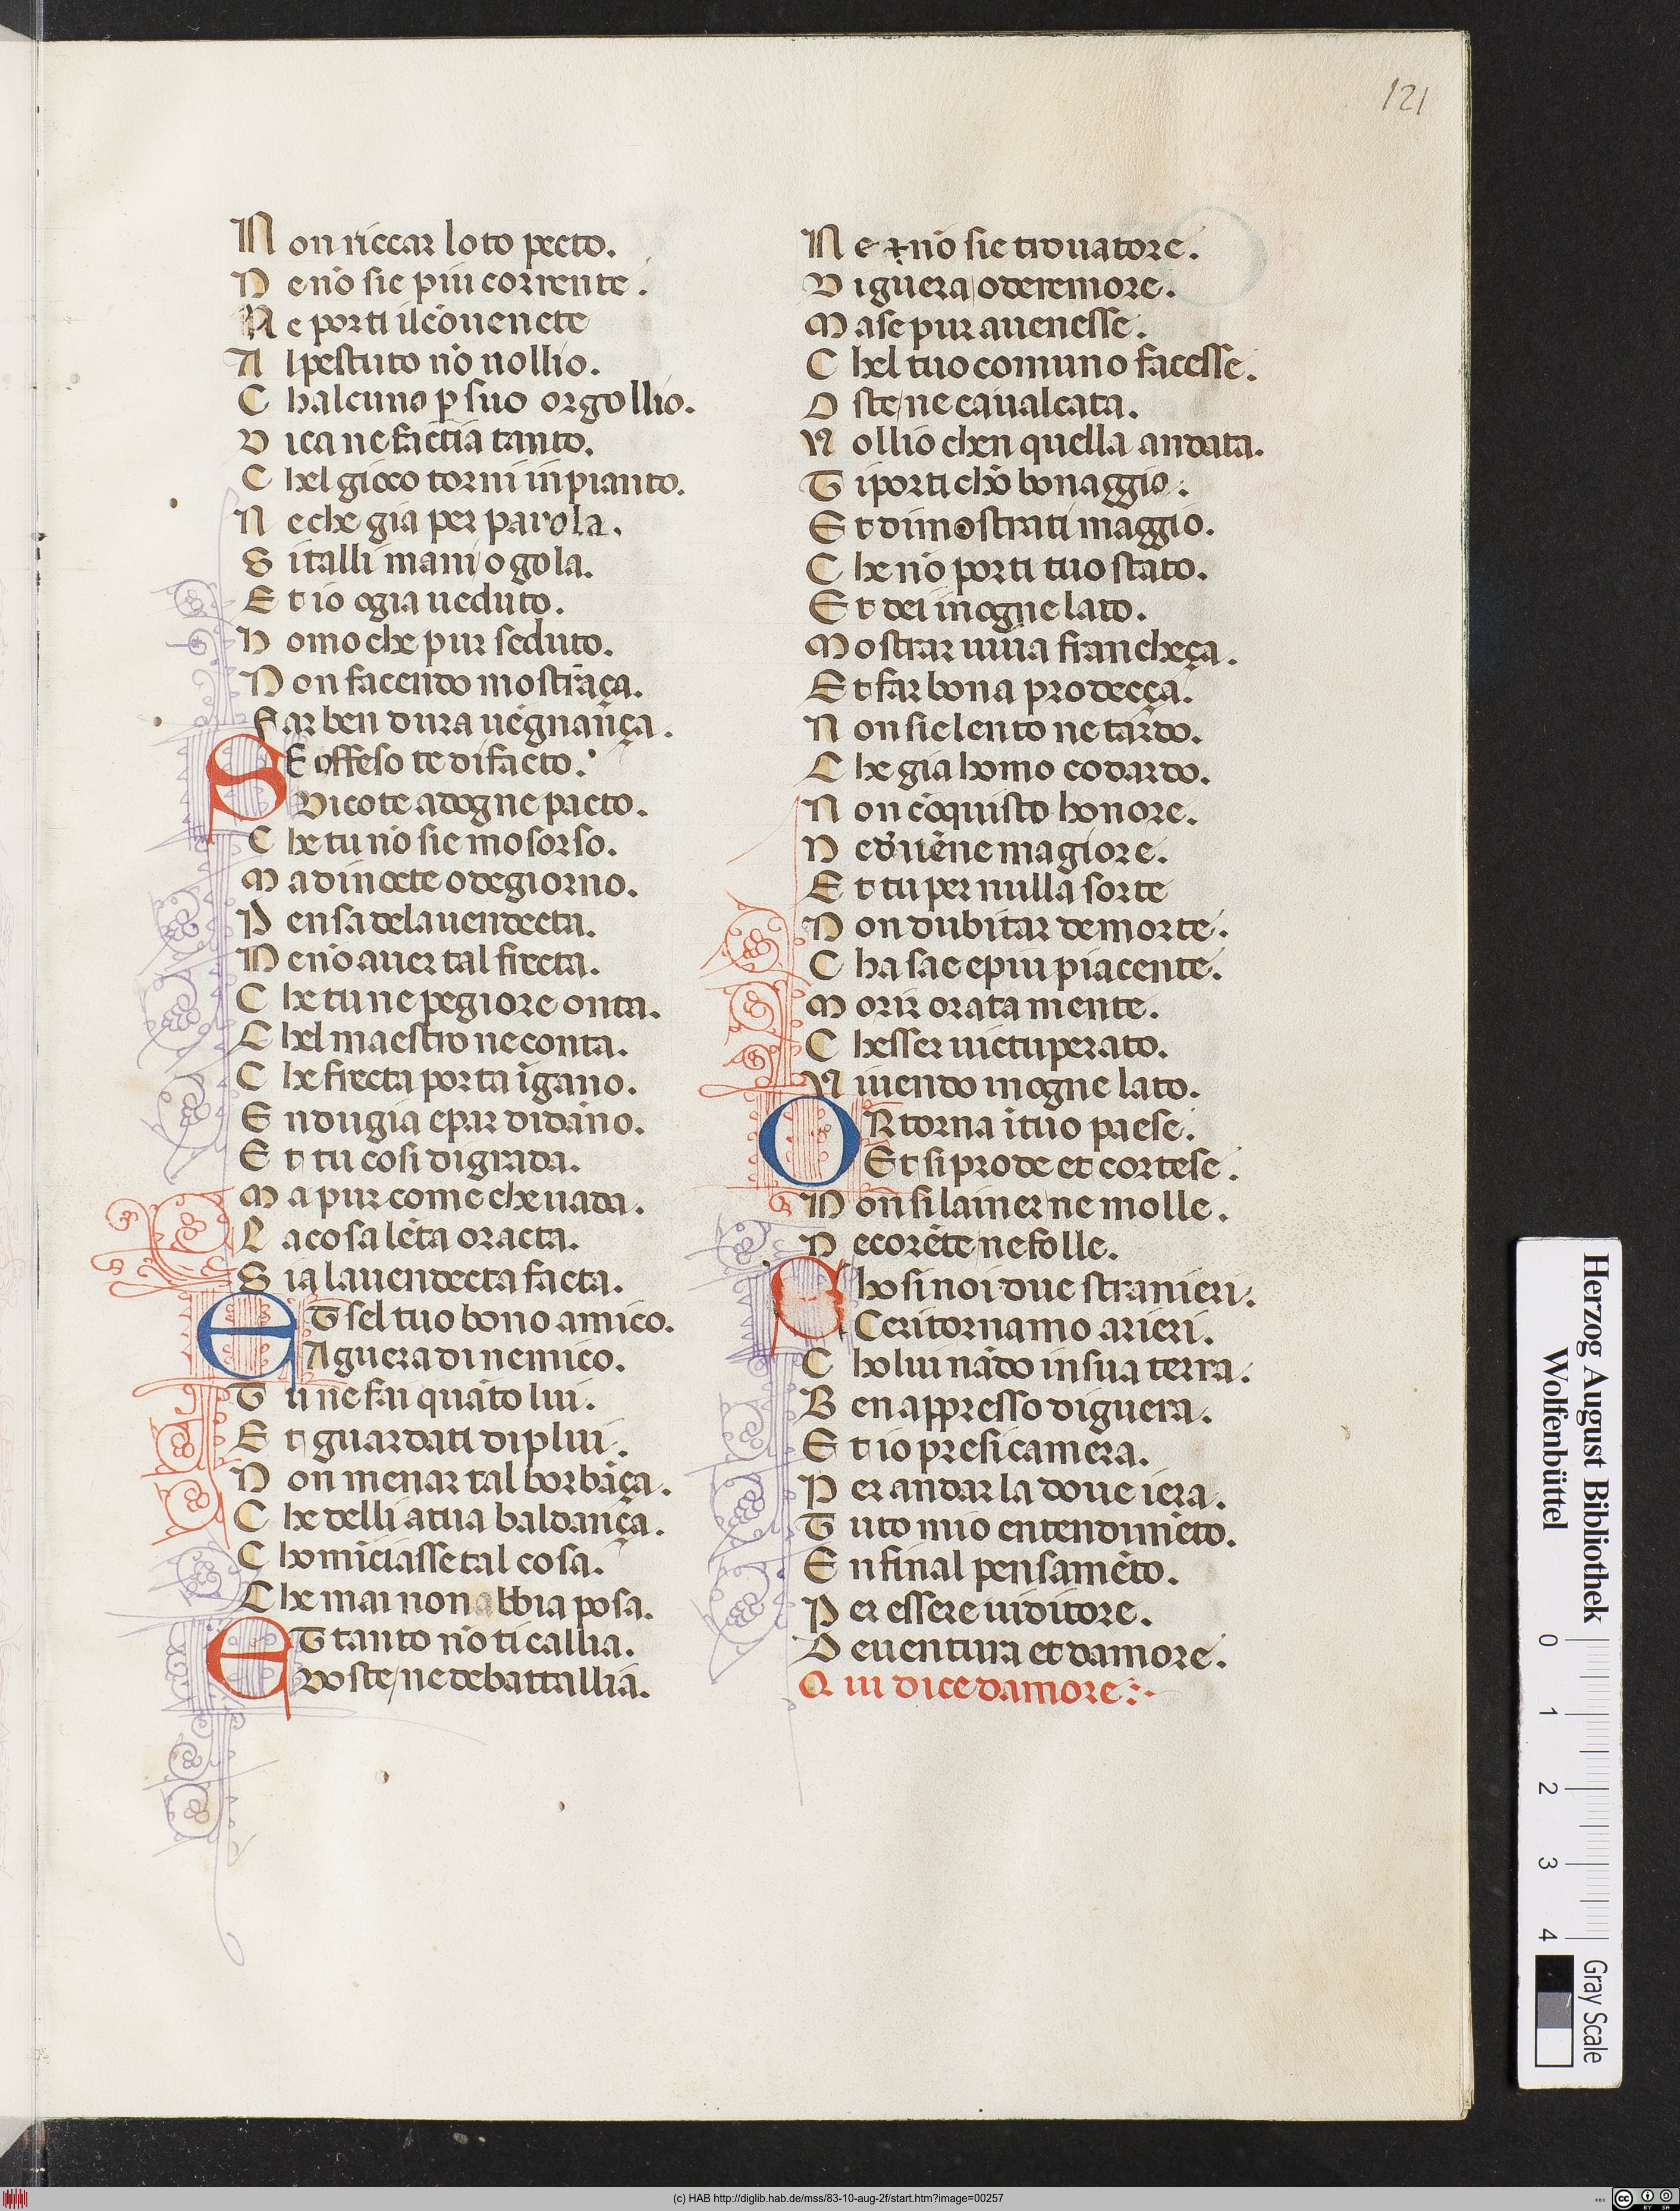 121
N on riccar loto pecto.
N e nō sie piu corrente.
N e porti il cōuenete
A l pestuto nō uollio.
C halcuno ꝑ suo orgollio.
D ica ne factia tanto.
C hel gioco torni in pianto.
N e che gia per parola.
S italli mani o gola.
E t io ogia ueduto.
H omo che pur seduto.
N on facendo mostrāça.
F ar ben dura uēgnança.
SE offeso te di facto.
Dicote adogne pacto.
C he tu nō sie mosorso.
M a di nocte o de giorno.
P ensa dela uendecta.
N e nō auer tal frecta.
C he tu ne pegiore onta.
C hel maestro ne conta.
C he frecta porta īgano.
E ndugia epar didāno.
E t tu cosi digrada.
M a pur come che uada.
L a cosa lēta o racta.
S ia la uendecta facta.
ET sel tuo bono amico.
A guera di nemico.
T u ne fai quāto lui.
E t guardati di plui.
N on menar tal borbāça.
C he delli a tua baldança.
C homīciasse tal cosa.
C he mai non abbia posa.
ET tanto nō ti callia.
D oste ne de battallia.
N e ⁊ nō sie trouatore.
D i guera o de remore.
M a se pur auenesse.
C hel tuo comuno facesse.
O ste ne caualcata.
V ollio chen quella andata.
T i porti chō bonaggio.
E t dimostrati maggio.
C he nō porti tuo stato.
E t dei in ogne lato.
M ostrar uiuia francheça.
E t far bona prodecça.
N on sie lento ne tardo.
C he gia homo codardo.
N on cōquisto honore.
N e diuēne magiore.
E t tu per nulla sorte
N on dubitar de morte.
C hasae e piu piacente.
M orir oratamente.
C hesser uictuperato.
V iuendo in ogne lato.
OR torna ī tuo paese.
E t si prode et cortese.
N on si lainer ne molle.
N e corēte ne folle.
Cho si noi due stranieri.
Ce ritornamo arieri.
C holui nādo in sua terra.
B en appresso di guera.
E t io presi camera.
P er andar la doue iera.
T uto mio entendimēto.
E n final pensamēto.
P er essere uiditore.
D euentura et damore.
Q ui dice damore:·
Herzog August Bibliothek
Wolfenbüttel
0 1 2 3 4
Gray Scale
(c) HAB http://diglib.hab.de/mss/83-10-aug-2f/start.htm?image=00257